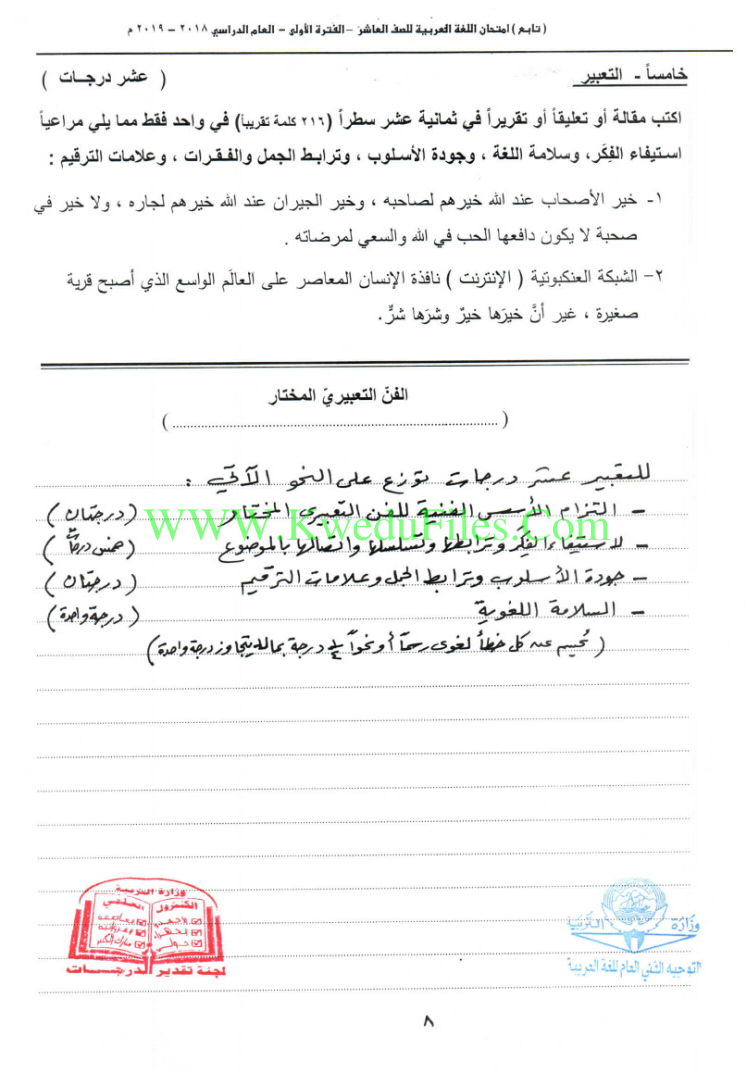 ( تابع ) امتحان اللغة العربية للصف العاشر – الفترة الأولى – العام الدراسي ٢٠١٨ – ٢٠١٩ م
خامساً - التعبير ( عشر درجـات )
اكتب مقالة أو تعليقاً أو تقريراً في ثمانية عشر سطراً (٢١٦ كلمة تقريباً) في واحد فقط مما يلي مراعياً
استيفاء الفِكَر، وسلامة اللغة ، وجودة الأسلوب ، وترابط الجمل والفـقرات ، وعلامات الترقيم :
١- خير الأصحاب عند الله خيرهم لصاحبه ، وخير الجيران عند الله خيرهم لجاره ، ولا خير في
صحبة لا يكون دافعها الحب في الله والسعي لمرضاته .
٢- الشبكة العنكبوتية ( الإنترنت ) نافذة الإنسان المعاصر على العالَم الواسع الذي أصبح قرية
صغيرة ، غير أنَّ خيرَها خيرٌ وشرَها شرٌّ.
الفنّ التعبيريّ المختار
(................................................................)
للتعبير عشر درجات توزع على النحو الآتي :
- التزام الأسس الفنية للفن التعبيري المختار (درجتان)
- استيفاء الفِكَر وترابطها وتسلسلها واتصالها بالموضوع (خمس درجات)
- جودة الأسلوب وترابط الجمل وعلامات الترقيم (درجتان)
- السلامة اللغوية (درجة واحدة)
( كل خطأ لغوي رسماً أو نحواً درجة بما لا يتجاوز درجة واحدة)
WWW.KweduFiles.Com
وزارة التربية
الكنترول العلمي
لجنة تقدير الدرجـــات
وزارة التربية
التوجيه الفني العام للغة العربية
٨